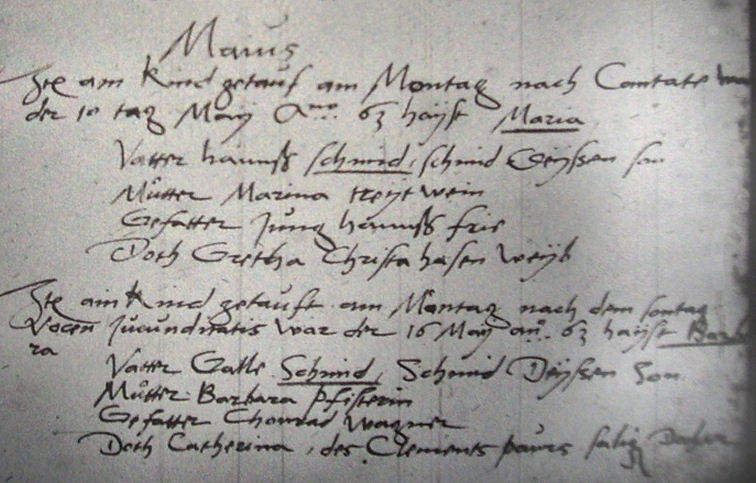 Maius
Ite ain Kind getauf am Montag nach Cantate war
der 10 tag May Ano. 63 hayst Maria
Vatter hannß Schmid, schmid Deyssen son
Můtter Marina treytwein
Gefatter Jung hannß frie
Doth Gretha Christa hasen weyb
Ite ain Kind getauft am Montag nach dem sontag
Vocem Jucunditatis war der 16 May ano. 63 hayst Barba
ra
Vatter Galle Schmid, Schmid Deyssen Son
Můtter Barbara Pfisterin
Gefatter Chonrad Wagner
Doth Catherina, des Clements paurs salig